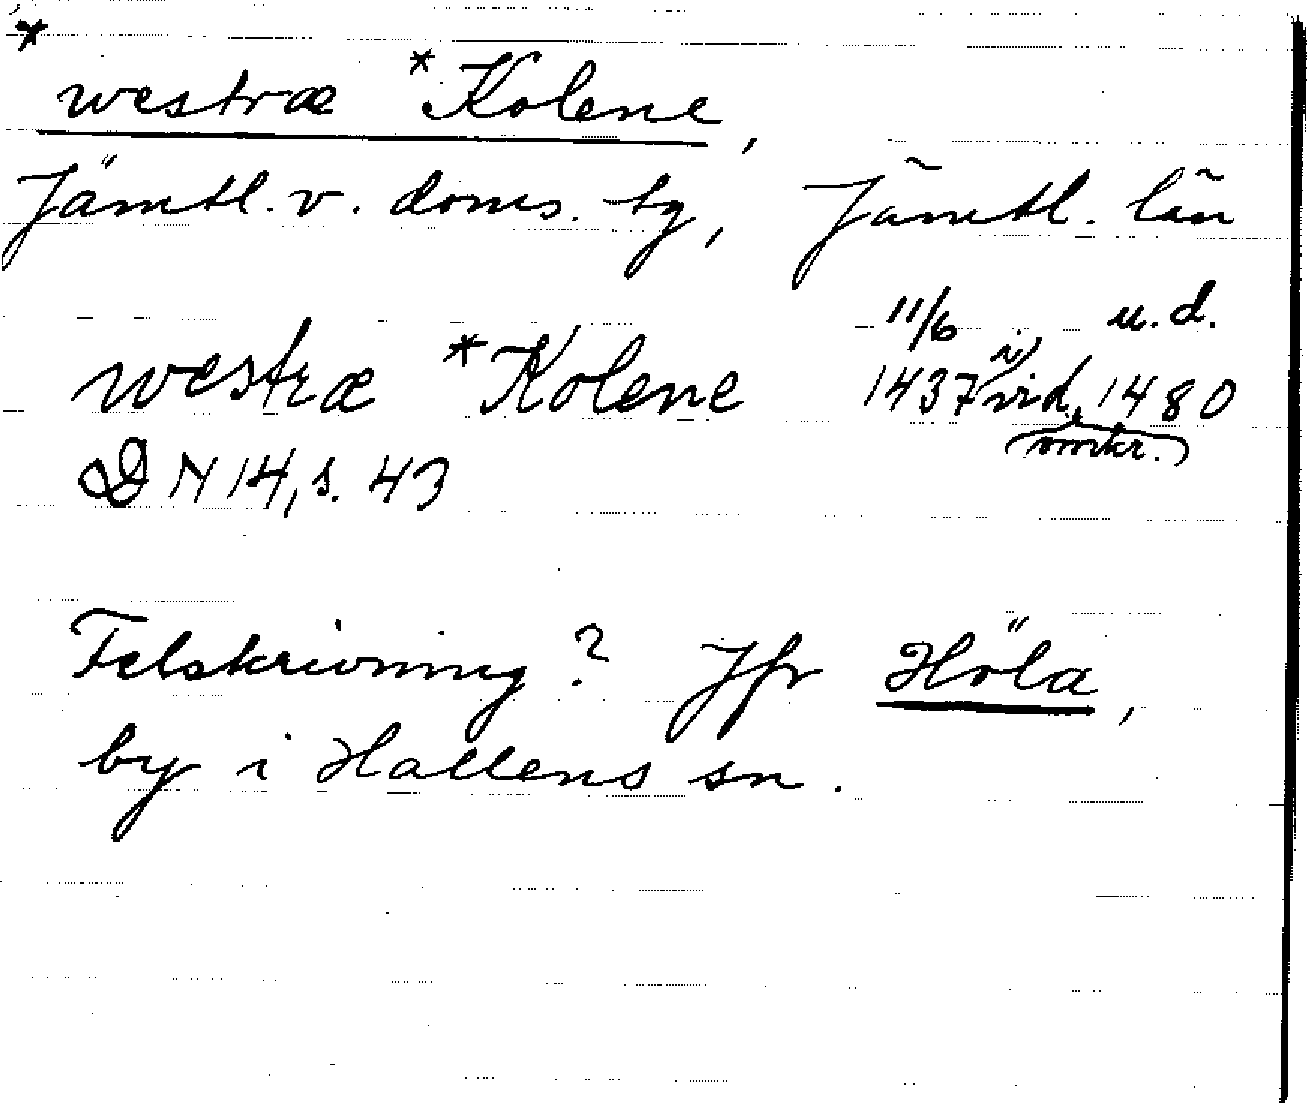 *
westræ *Kolene,
Jämtl. v. doms. tg, Jämtl. län
westræ *Kolene 11/6 1437 i vid. u.d. 1480 (omkr.)
DN 14, s. 43
Felskrivning? Jfr Höla,
by i Hallens sn.